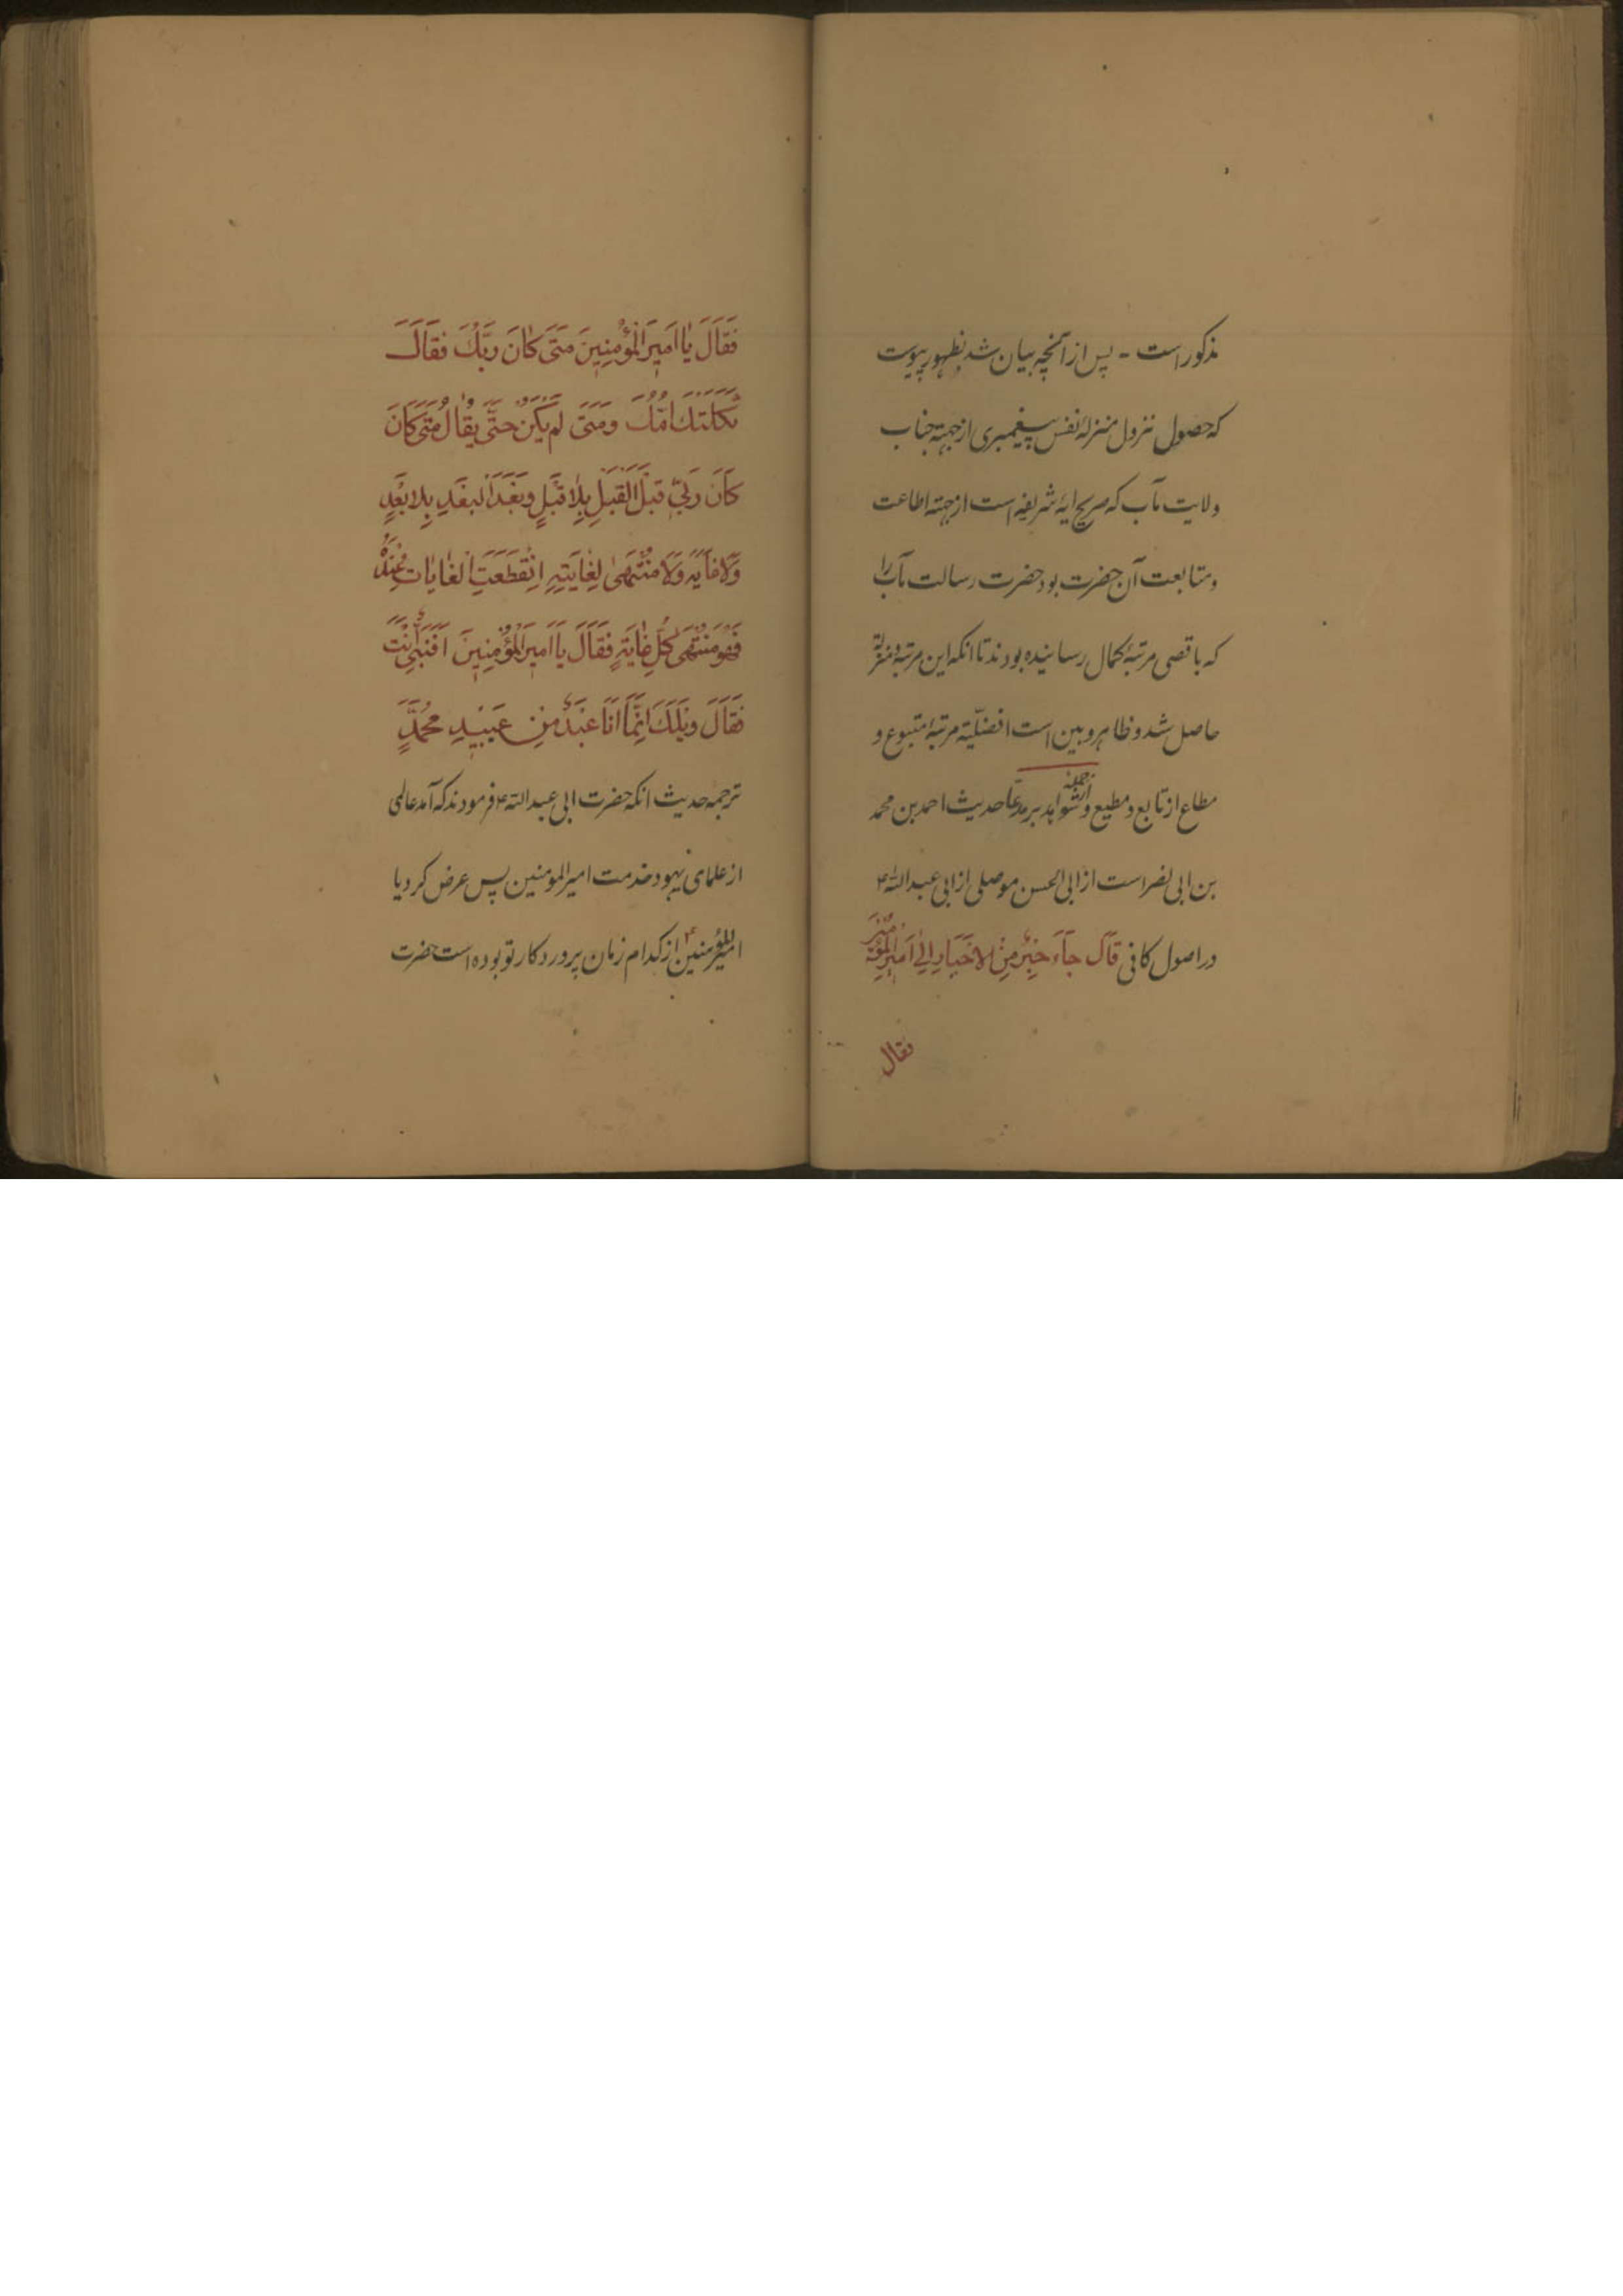 مذکور است - پس از آنچه بیان شد بظهور پیوست
که حصول نزول منزلهٔ نفس پیغمبری از جهة جناب
ولایت مآب که صریح ایهٔ شریفه است از جهته اطاعت
و متابعت آن حضرت بود حضرت رسالت مآب را
که باقصی مرتبهٔ کمال رسانیده بودند تا انکه این مرتبه و منزلة
حاصل شد و ظاهر و بین است افضلیّة مرتبهٔ متبوع و
مطاع از تابع و مطیع و ازجمله شواهد بر مدعا حدیث احمد بن محمد
بن ابی نصر است از ابی الحسن موصلی از ابی عبد الله ع
در اصول کافی قَالَ جَآءَ حِبْرٌ مِنَ الاَحْبَارِ اِلیٰ اَمیرِ الْمُؤمِنینَ
فقال
فَقَالَ یٰا اَمیٖرَ الْمُؤْمِنیٖنَ مَتیٰ کٰانَ رَبُّكَ فَقَالَ
ثَکَلَتْكَ اُمُّكَ وَمَتیٰ لَمْ یَکُنْ حَتّیٰ یُقٰالُ مَتیٰ کَانَ
کَانَ رَبّیٖ قَبْلَ الْقَبْلِ بِلاٰ قَبْلٍ وَبَعْدَ الْبَعْدِ بِلاٰ بَعْدٍ
وَلاٰ غٰایَةَ وَلاٰ مُنْتَهیٰ لِغٰایَتِهِ اِنْقَطَعَتِ الْغٰایٰاتُ عِنْدَهُ
فَهُوَ مُنْتَهیٰ کُلِّ غٰایَةٍ فَقَالَ یٰا اَمیٖرَ الْمُؤْمِنیٖنَ اَفَنَبِیٌّ اَنْتَ
فَقَالَ وَیْلَكَ اِنَّمٰا اَنَا عَبْدٌ مِنْ عَبیٖدِ مُحَمَّدٍ
ترجمهٔ حدیث انکه حضرت ابی عبد الله ع فرمودند که آمد عالمی
از علمای یهود خدمت امیر المومنین پس عرض کرد یا
امیر المؤمنین ع از کدام زمان پروردکار تو بوده است حضرت